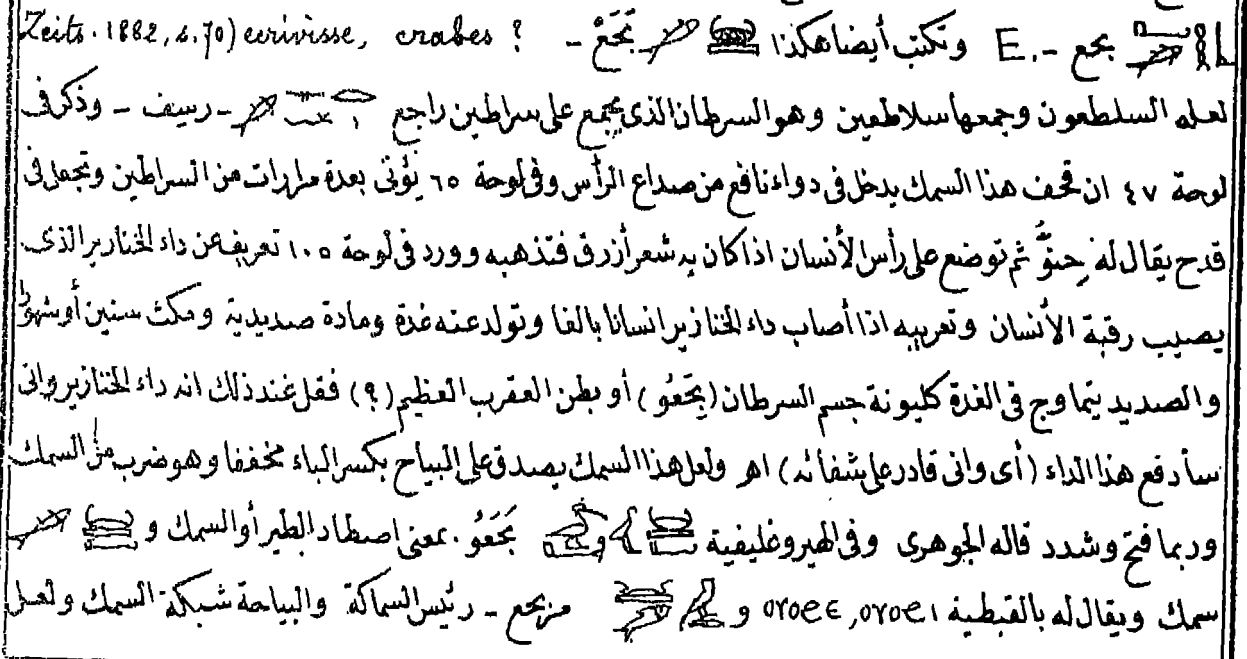 بحع -. E وتكتب أيضا هكذا بَحَعْ - Zeits. 1882, s. 70) ecrivisse, crabes ?
لعله السلطعون وجمعها سلاطعين وهو السرطان الذى يجمع على سراطين راجع - رسيف - وذكر فى
لوحة ٤٧ ان قحف هذا السمك يدخل فى دواء نافع من صداع الرأس وفى لوحة ٦٥ يؤتى بعدة مرارات من السراطين وتجعل فى
قدح يقال له حِنوٌّ ثم توضع على رأس الأنسان اذا كان به شعر أزرق فتذهبه وورد فى لوحة ١٠٥ تعريف عن داء الخنازير الذى
يصيب رقبة الأنسان وتعريبه اذا أصاب داء الخنازير انسانا بالغا وتولد عنه غدة ومادة صديدية ومكث سنين أو شهورا
والصديد يتماوج فى الغدة كليونة جسم السرطان (بِحَعُو) أو بطن العقرب العظيم (؟) فقل عند ذلك انه داء الخنازير وانى
سأدفع هذا الداء (أى وانى قادر على شفائه) اهـ ولعل هذا السمك يصدق على البياح بكسر الباء مخففا وهو ضرب من السمك
وربما فتح وشدد قاله الجوهرى وفى الهيروغليفية بَحَعَوُ. بمعنى اصطاد الطير أو السمك و
سمك ويقال له بالقبطية ⲟⲩⲟϩⲉ, ⲟⲩⲟϩⲓ و مزبحع - رئيس السماكة والبياحة شبكة السمك ولعل